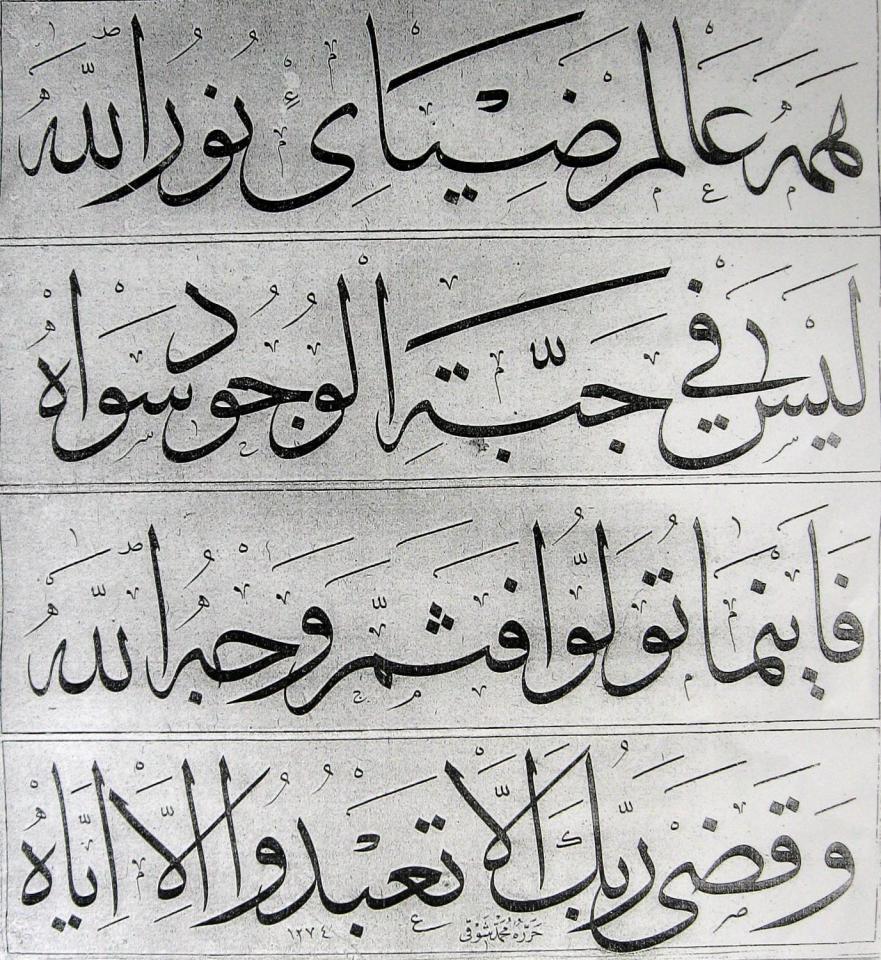 همه عالم ضیای نور الله
لیس فی جبّة الوجود سواه
فاینما تولّوا فثمّ وجه الله
وقضی ربّك الّا تعبدوا الّا ایّاه
حرّره محمد شوقی ١٢٧٤